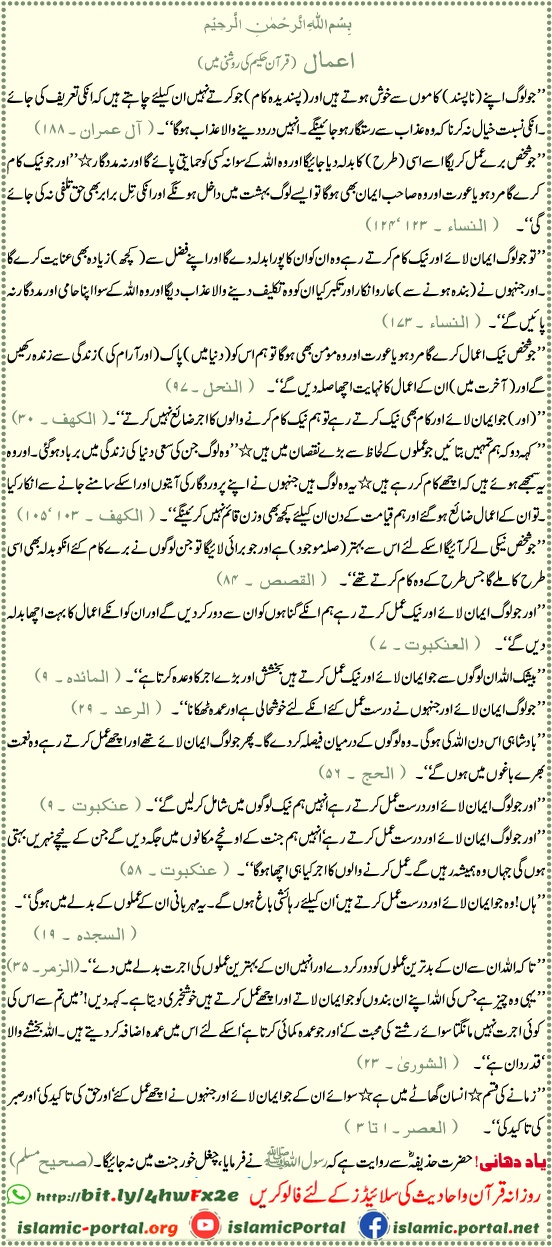 بِسْمِ اللهِ الرَّحْمٰنِ الرَّحِيْمِ
اعمال (قرآن حکیم کی روشنی میں)
’’جو لوگ اپنے (ناپسند) کاموں سے خوش ہوتے ہیں اور (پسندیدہ کام) جو کرتے نہیں ان کیلئے چاہتے ہیں کہ انکی تعریف کی جائے
۔ انکی نسبت خیال نہ کرنا کہ وہ عذاب سے رستگار ہو جائینگے۔ انہیں درد دینے والا عذاب ہوگا‘‘۔ (آل عمران ۔ ۱۸۸)
’’جو شخص برے عمل کریگا اسے اسی (طرح) کا بدلہ دیا جائیگا اور وہ اللہ کے سوا نہ کسی کو حمایتی پائے گا اور نہ مددگار☆’’اور جو نیک کام
کرے گا مرد ہو یا عورت اور وہ صاحب ایمان بھی ہوگا تو ایسے لوگ بہشت میں داخل ہونگے اور انکی تِل برابر بھی حق تلفی نہ کی جائے
گی‘‘۔ (النساء ۔ ۱۲۳ ‘۱۲۴)
’’تو جو لوگ ایمان لائے اور نیک کام کرتے رہے وہ ان کو ان کا پورا بدلہ دے گا اور اپنے فضل سے (کچھ) زیادہ بھی عنایت کرے گا
۔ اور جنہوں نے (بندہ ہونے سے) عار و انکار اور تکبر کیا ان کو وہ تکلیف دینے والا عذاب دیگا اور وہ اللہ کے سوا اپنا حامی اور مددگار نہ
پائیں گے‘‘۔ (النساء ۔ ۱۷۳)
’’جو شخص نیک اعمال کرے گا مرد ہو یا عورت اور وہ مؤمن بھی ہوگا تو ہم اس کو (دنیا میں) پاک (اور آرام کی) زندگی سے زندہ رکھیں
گے اور (آخرت میں) ان کے اعمال کا نہایت اچھا صلہ دیں گے‘‘۔ (النحل ۔ ۹۷)
’’(اور) جو ایمان لائے اور کام بھی نیک کرتے رہے تو ہم نیک کام کرنے والوں کا اجر ضائع نہیں کرتے‘‘۔ (الکھف ۔ ۳۰)
’’کہہ دو کہ ہم تمہیں بتائیں جو عملوں کے لحاظ سے بڑے نقصان میں ہیں☆’’وہ لوگ جن کی سعی دنیا کی زندگی میں برباد ہوگئی۔ اور وہ
یہ سمجھے ہوئے ہیں کہ اچھے کام کر رہے ہیں☆یہ وہ لوگ ہیں جنہوں نے اپنے پروردگار کی آیتوں اور اسکے سامنے جانے سے انکار کیا
۔ تو ان کے اعمال ضائع ہوگئے اور ہم قیامت کے دن ان کیلئے کچھ بھی وزن قائم نہیں کرینگے‘‘۔ (الکھف ۔ ۱۰۳ ‘۱۰۵)
’’جو شخص نیکی لے کر آئیگا اسکے لئے اس سے بہتر (صلہ موجود) ہے اور جو برائی لائیگا تو جن لوگوں نے برے کام کئے انکو بدلہ بھی اسی
طرح کا ملے گا جس طرح کے وہ کام کرتے تھے‘‘۔ (القصص ۔ ۸۴)
’’اور جو لوگ ایمان لائے اور نیک عمل کرتے رہے ہم انکے گناہوں کو ان سے دور کر دیں گے اور ان کو انکے اعمال کا بہت اچھا بدلہ
دیں گے‘‘۔ (العنکبوت ۔ ۷)
’’بیشک اللہ ان لوگوں سے جو ایمان لائے اور نیک عمل کرتے ہیں بخشش اور بڑے اجر کا وعدہ کرتا ہے‘‘۔ (المائدہ ۔ ۹)
’’جو لوگ ایمان لائے اور جنہوں نے درست عمل کئے انکے لئے خوشحالی ہے اور عمدہ ٹھکانا‘‘۔ (الرعد ۔ ۲۹)
’’بادشاہی اس دن اللہ کی ہوگی۔ وہ لوگوں کے درمیان فیصلہ کر دے گا۔ پھر جو لوگ ایمان لائے تھے اور اچھے عمل کرتے رہے وہ نعمت
بھرے باغوں میں ہوں گے‘‘۔ (الحج ۔ ۵۶)
’’اور جو لوگ ایمان لائے اور درست عمل کرتے رہے انہیں ہم نیک لوگوں میں شامل کر لیں گے‘‘۔ (عنکبوت ۔ ۹)
’’اور جو لوگ ایمان لائے اور درست عمل کرتے رہے‘ اُنہیں ہم جنت کے اونچے مکانوں میں جگہ دیں گے جن کے نیچے نہریں بہتی
ہوں گی جہاں وہ ہمیشہ رہیں گے۔ عمل کرنے والوں کا اجر کیا ہی اچھا ہوگا‘‘۔ (عنکبوت ۔ ۵۸)
’’ہاں! وہ جو ایمان لائے اور درست عمل کرتے ہیں‘ ان کیلئے رہائشی باغ ہوں گے۔ یہ مہربانی ان کے عملوں کے بدلے میں ہوگی‘‘۔
(السجدہ ۔ ۱۹)
’’تاکہ اللہ ان سے ان کے بدترین عملوں کو دور کر دے اور انہیں ان کے بہترین عملوں کی اجرت بدلے میں دے‘‘۔ (الزمر۔ ۳۵)
’’یہی وہ چیز ہے جس کی اللہ اپنے ان بندوں کو جو ایمان لاتے اور اچھے عمل کرتے ہیں خوشخبری دیتا ہے۔ کہہ دیں! ’میں تم سے اس کی
کوئی اجرت نہیں مانگتا سوائے رشتے کی محبت کے‘ اور جو عمدہ کمائی کرتا ہے‘ اسکے لئے اس میں عمدہ اضافہ کر دیتے ہیں۔ اللہ بخشنے والا
‘قدردان ہے‘‘۔ (الشوریٰ ۔ ۲۳)
’’زمانے کی قسم☆انسان گھاٹے میں ہے☆سوائے ان کے جو ایمان لائے اور جنہوں نے اچھے عمل کئے‘ اور حق کی تاکید کی‘ اور صبر
کی تاکید کی‘‘۔ (العصر۔ ۱ تا ۳)
یاد دھانی! حضرت حذیفہؓ سے روایت ہے کہ رسول اللہ ﷺ نے فرمایا، چغل خور جنت میں نہ جائیگا۔ (صحیح مسلم)
روزانہ قرآن و احادیث کی سلائیڈز کے لئے فالو کریں http://bit.ly/4hwFx2e
islamic-portal.org islamicPortal islamic.portal.net